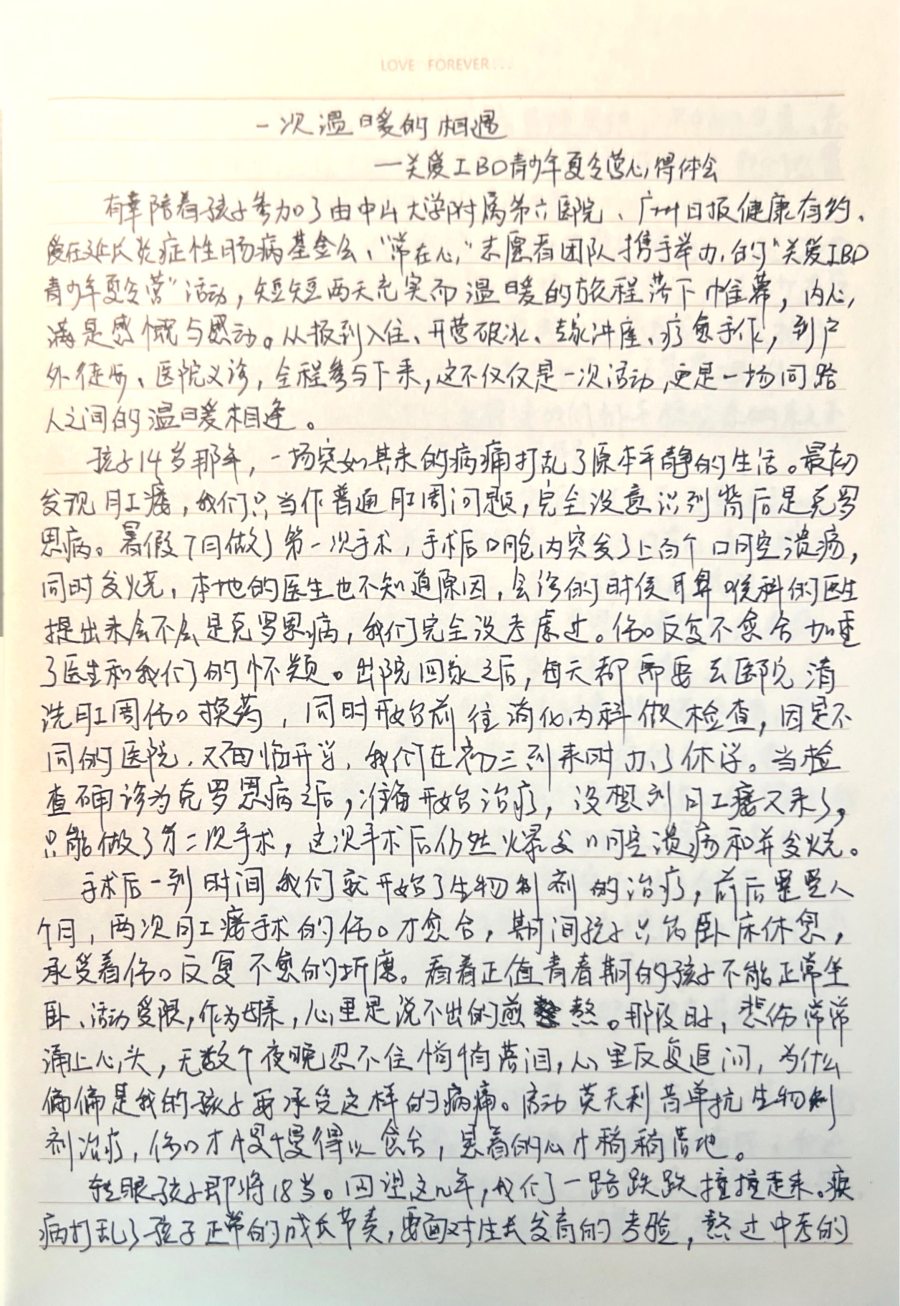 LOVE FOREVER...
一次温暖的相遇
—关爱IBD青少年夏令营心得体会
有幸陪着孩子参加了由中山大学附属第六医院、广州日报健康有约、
爱在延长炎症性肠病基金会、“常在心”志愿者团队携手举办的“关爱IBD
青少年夏令营”活动，短短两天充实而温暖的旅程落下帷幕，内心
满是感慨与感动。从报到入住、开营破冰、专家讲座、疗愈手作，到户
外徒步、医院义诊，全程参与下来，这不仅仅是一次活动，更是一场同路
人之间的温暖相逢。
孩子14岁那年，一场突如其来的病痛打乱了原本平静的生活。最初
发现肛瘘，我们只当作普通肛周问题，完全没意识到背后是克罗
恩病。暑假7月做了第一次手术，手术后口腔内突发了上百个口腔溃疡，
同时发烧，本地的医生也不知道原因，会诊的时侯耳鼻喉科的医生
提出来会不会是克罗恩病，我们完全没考虑过。伤口反复不愈合加重
了医生和我们的怀疑。出院回家之后，每天都需要去医院清
洗肛周伤口换药，同时开始前往消化内科做检查，因是不
同的医院，又面临开学，我们在初三到来时办了休学。当检
查确诊为克罗恩病之后，准备开始治疗，没想到肛瘘又来了，
只能做了第二次手术，这次手术后仍然爆发口腔溃疡和并发烧。
手术后一到时间我们就开始了生物制剂的治疗，前后整整八
个月，两次肛瘘手术的伤口才愈合，期间孩子只能卧床休息，
承受着伤口反复不愈的折磨。看着正值青春期的孩子不能正常坐
卧、活动受限，作为母亲，心里是说不出的煎熬。那段日子，悲伤常常
涌上心头，无数个夜晚忍不住悄悄落泪，心里反复追问，为什么
偏偏是我的孩子要承受这样的病痛。启动英夫利昔单抗生物制
剂治疗，伤口才慢慢得以愈合，悬着的心才稍稍落地。
转眼孩子即将18岁。回望这几年，我们一路跌跌撞撞走来。疾
病打乱了孩子正常的成长节奏，要面对生长发育的考验，熬过中考的